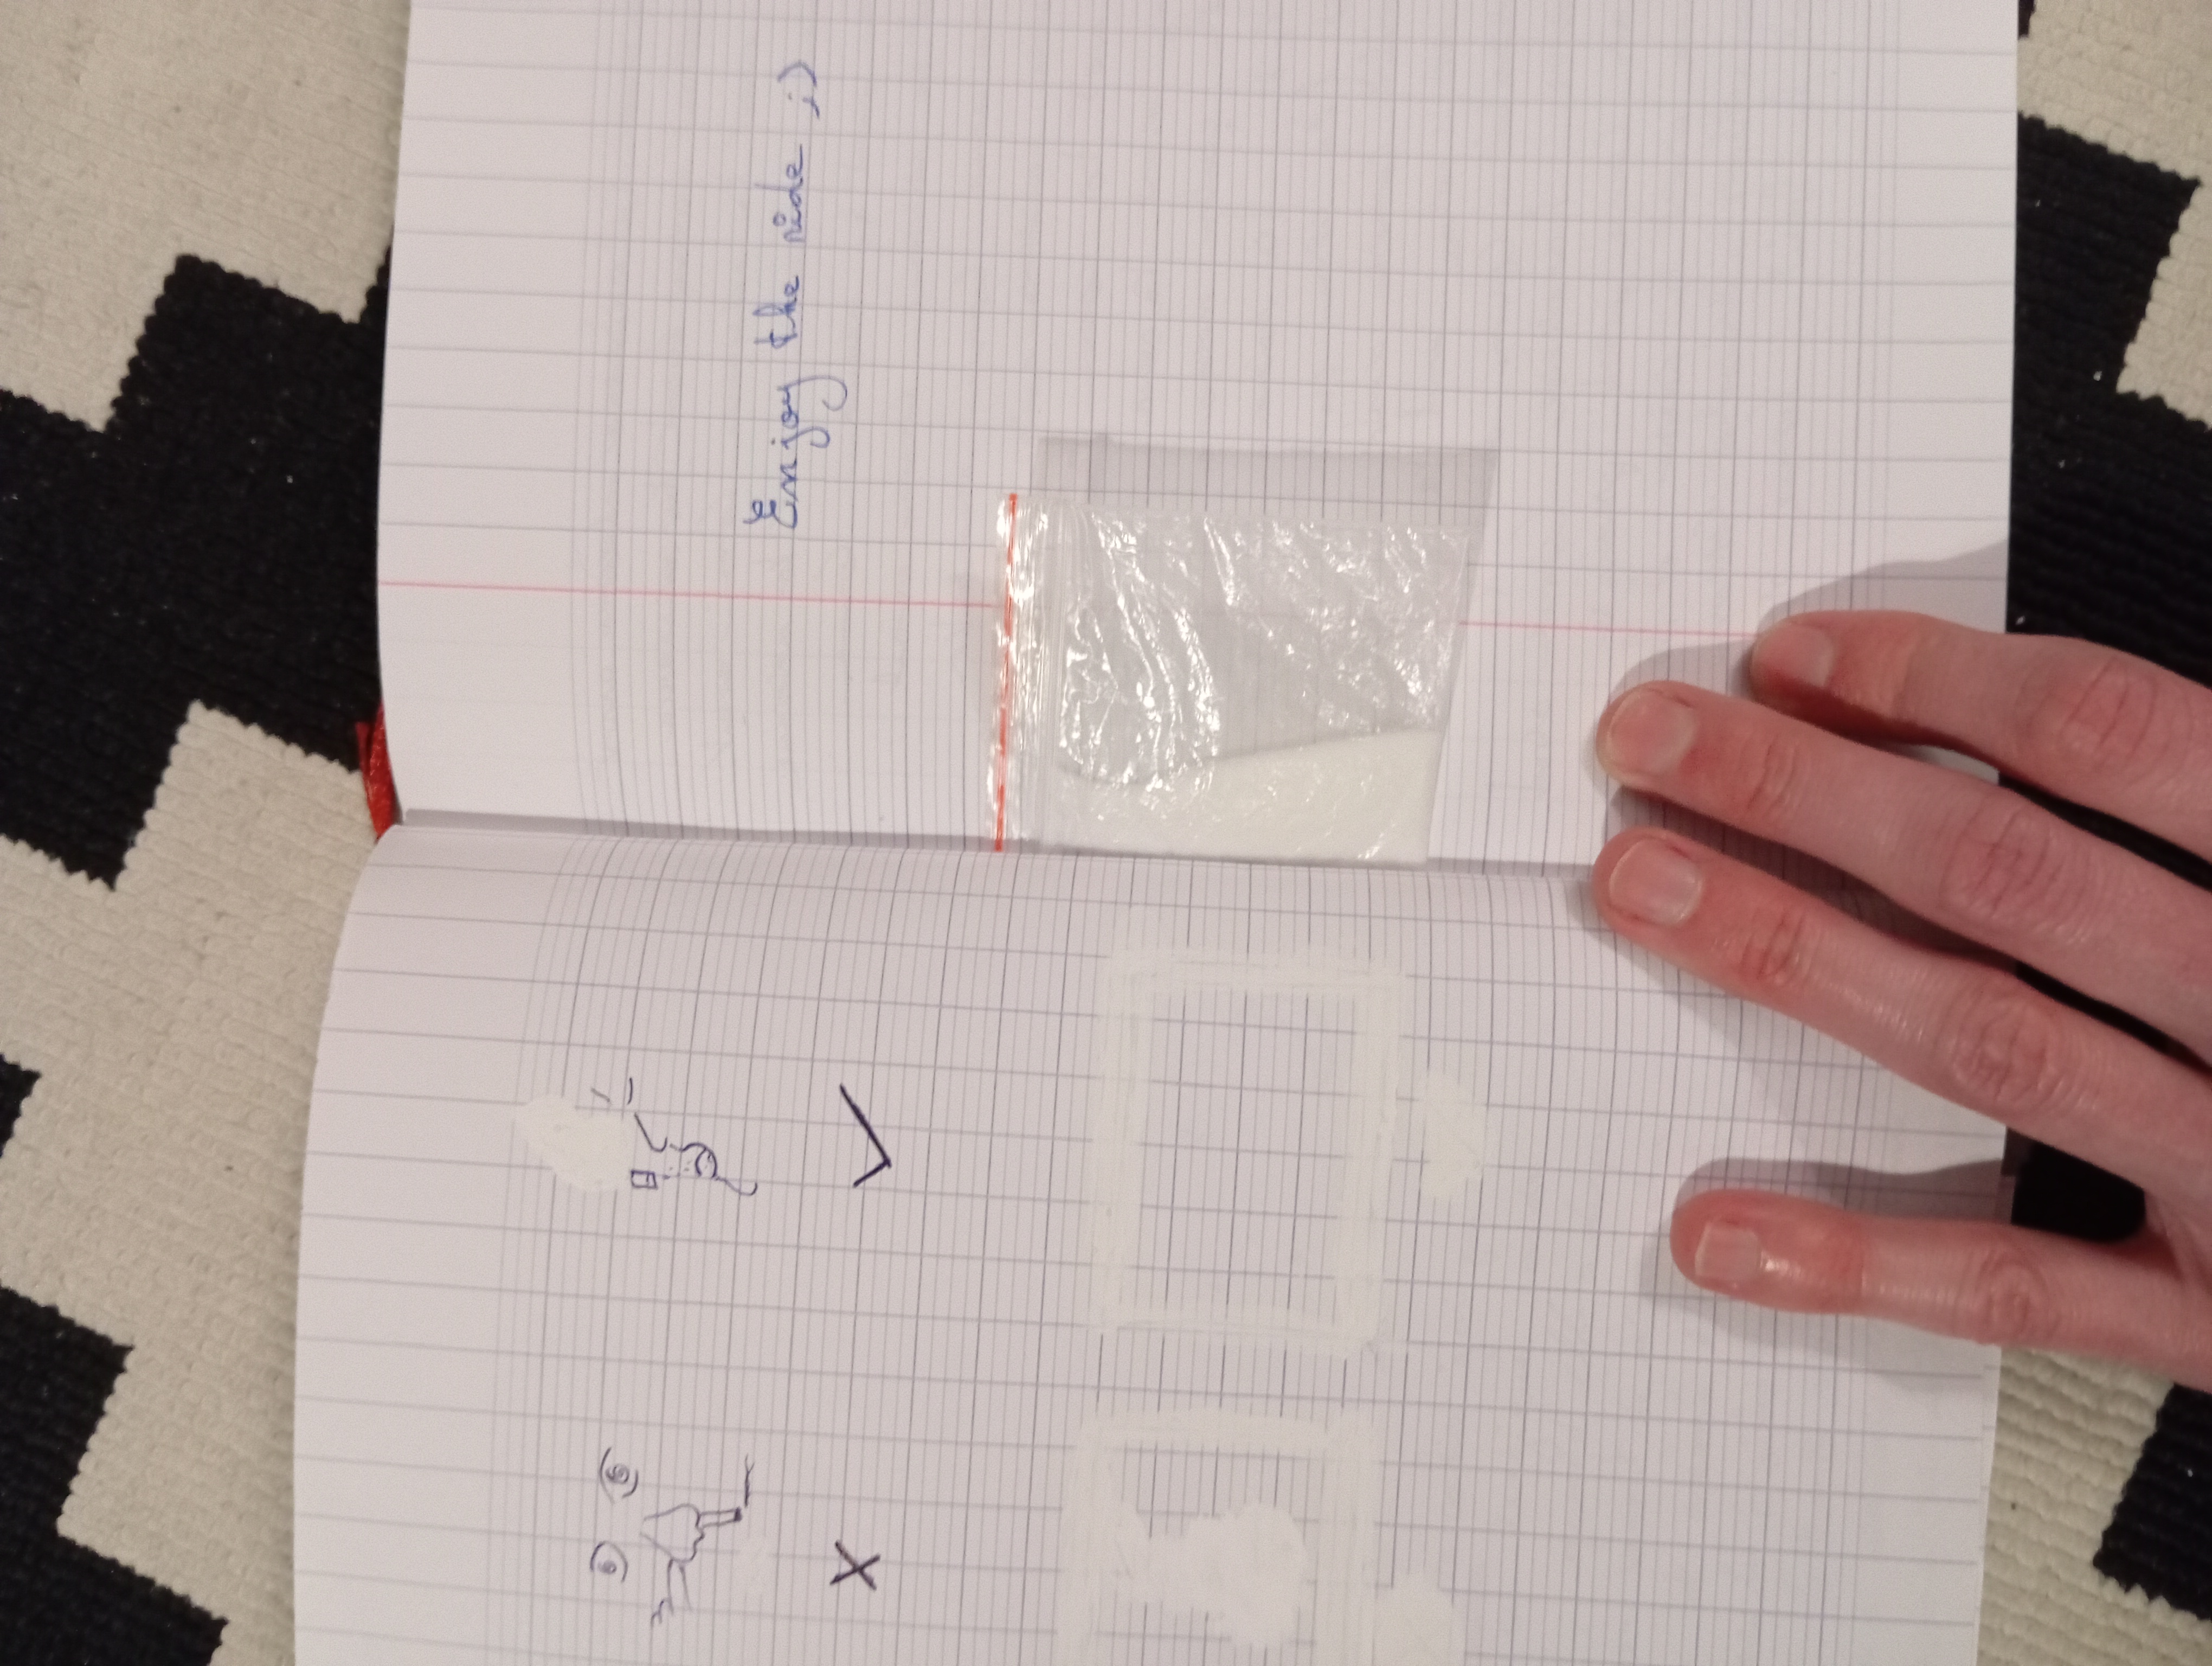 Enjoy the ride ;)